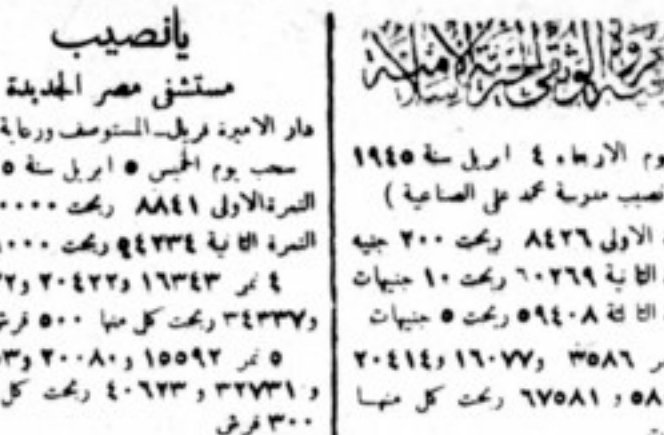 العروة الوثقى الخيرية الاسلامية
يوم الاربعاء ٤ ابريل سنة ١٩٤٥
نصيب مدرسة محمد على الصناعية )
الاولى ٨٤٢٦ ربحت ٢٠٠ جنيه
الثانية ٦٠٢٦٩ ربحت ١٠ جنيهات
الثالثة ٥٩٤٠٨ ربحت ٥ جنيهات
٣٥٨٦ و١٦٠٧٧ و٢٠٤١٤
و ٦٧٥٨١ ربحت كل منهـا
يانصيب
مستشفى مصر الجديدة
دار الاميرة فريال ـ المستوصف ورعاية
سحب يوم الخميس ٥ ابريل سنة
النمرة الاولى ٨٨٤١ ربحت
النمرة الثانية ٩٤٢٣٤ ربحت
٤ نمر ١٦٣٤٣ و٢٠٤٢٢
و٣٤٣٣٧ ربحت كل منها ٥٠٠ قرش
٥ نمر ١٥٥٩٢ و٢٠٠٨٠
و ٣٢٧٣١ و ٤٠٦٢٣ ربحت كل
٣٠٠ قرش